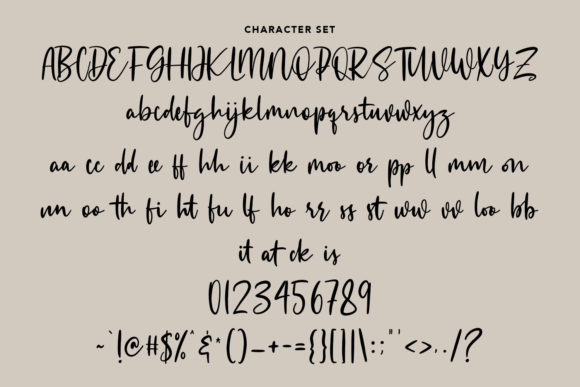 CHARACTER SET
ABCDEFGHIJKLMNOPQRSTUVWXYZ
abcdefghijklmnopqrstuvwxyz
aa cc dd ee ff hh ii kk moo or pp ll mm on
nn oo th fi ht fu lf ho rr ss st ww vv loo bb
it at ck is
0123456789
~`!@#$%^&*()_+-={}[]|\:;"'<>,./?